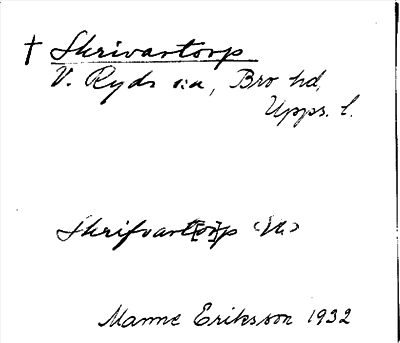 † Skrivartorp
V. Ryds s:n, Bro hd,
Upps. l.
Skrifvart[or]p
Manne Eriksson 1932